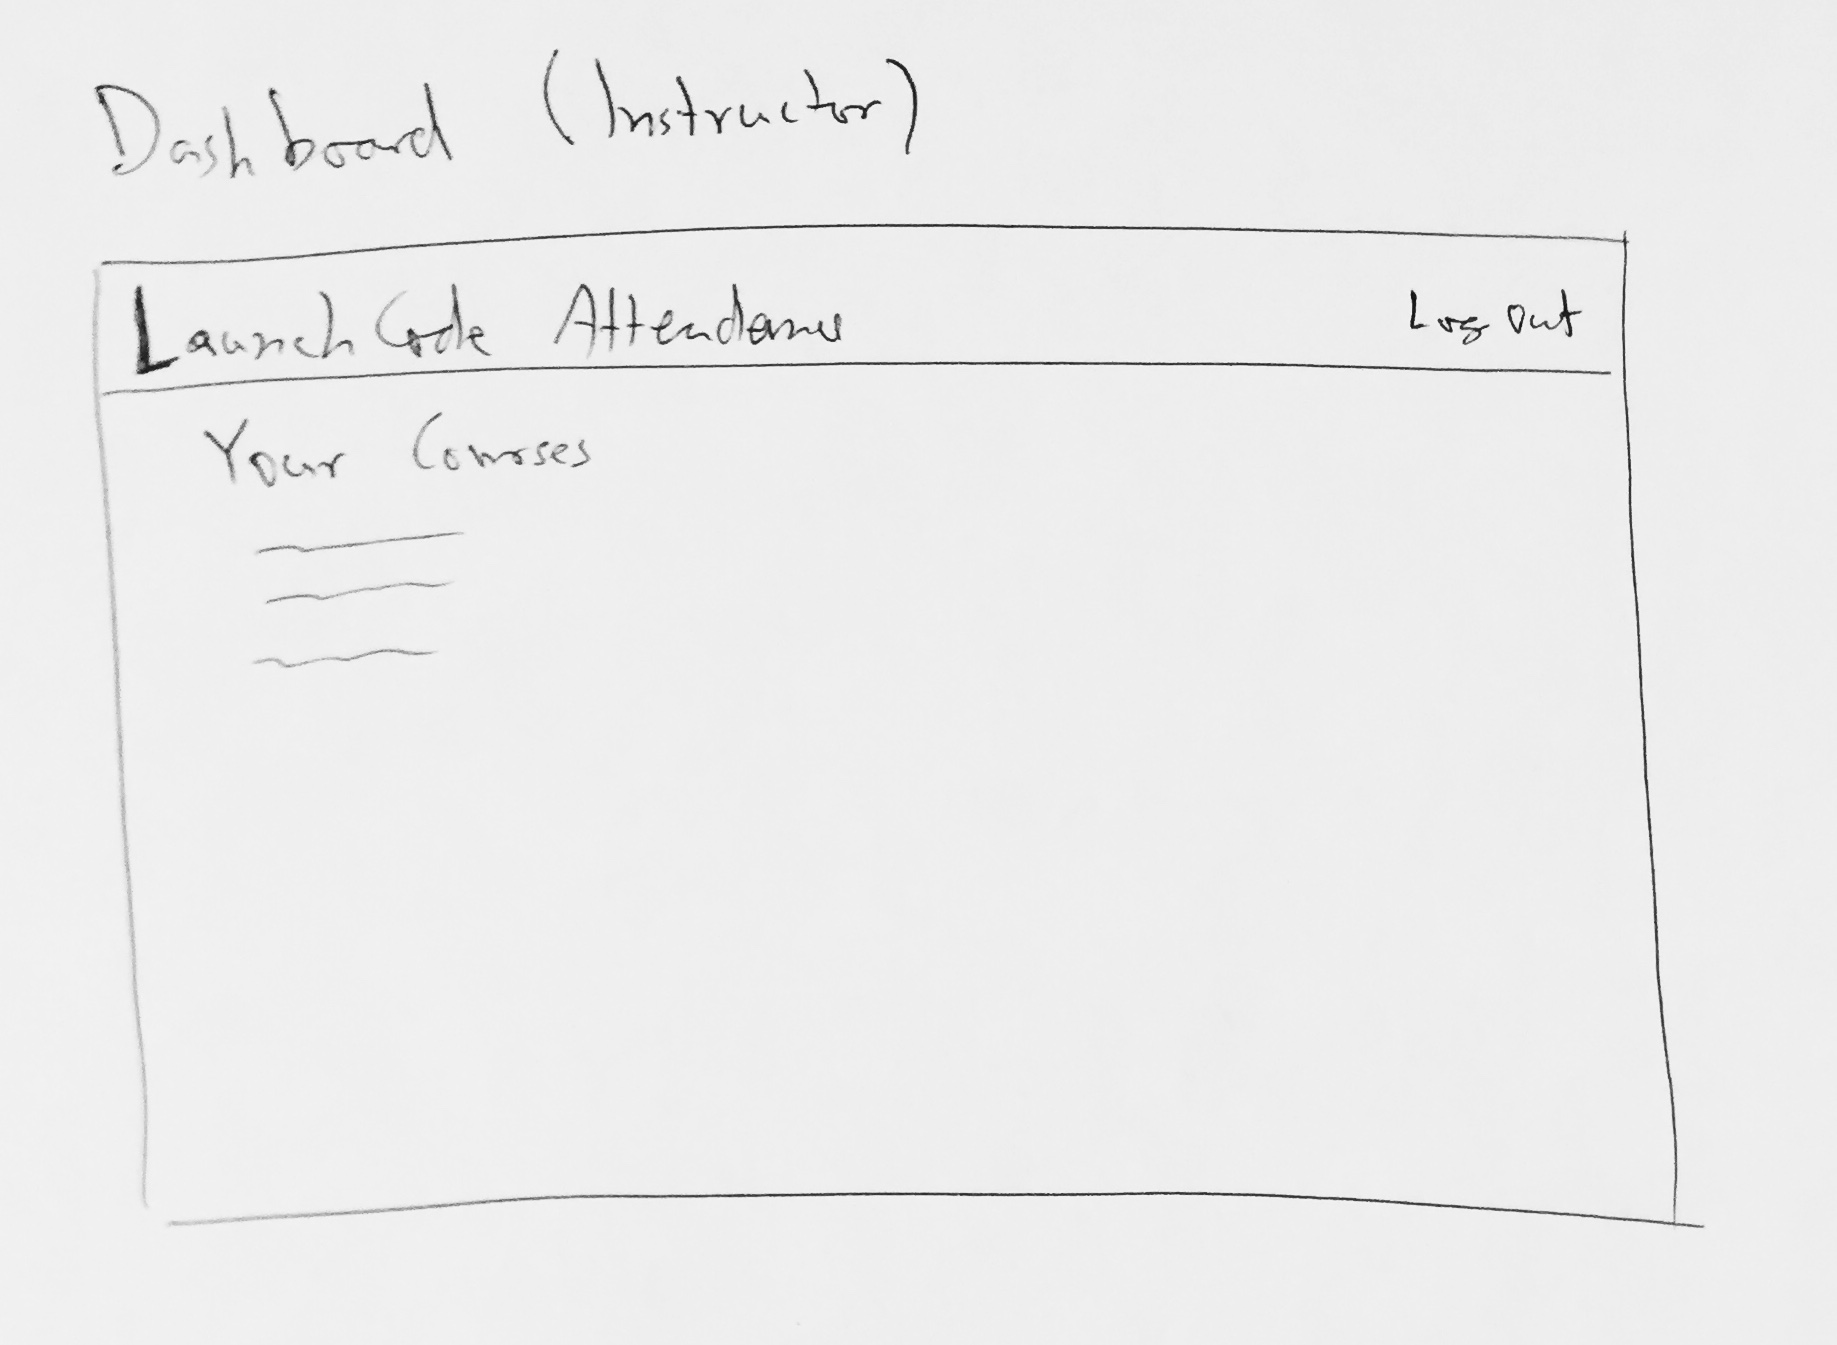 Dashboard (Instructor)
LaunchCode Attendance
Log Out
Your Courses